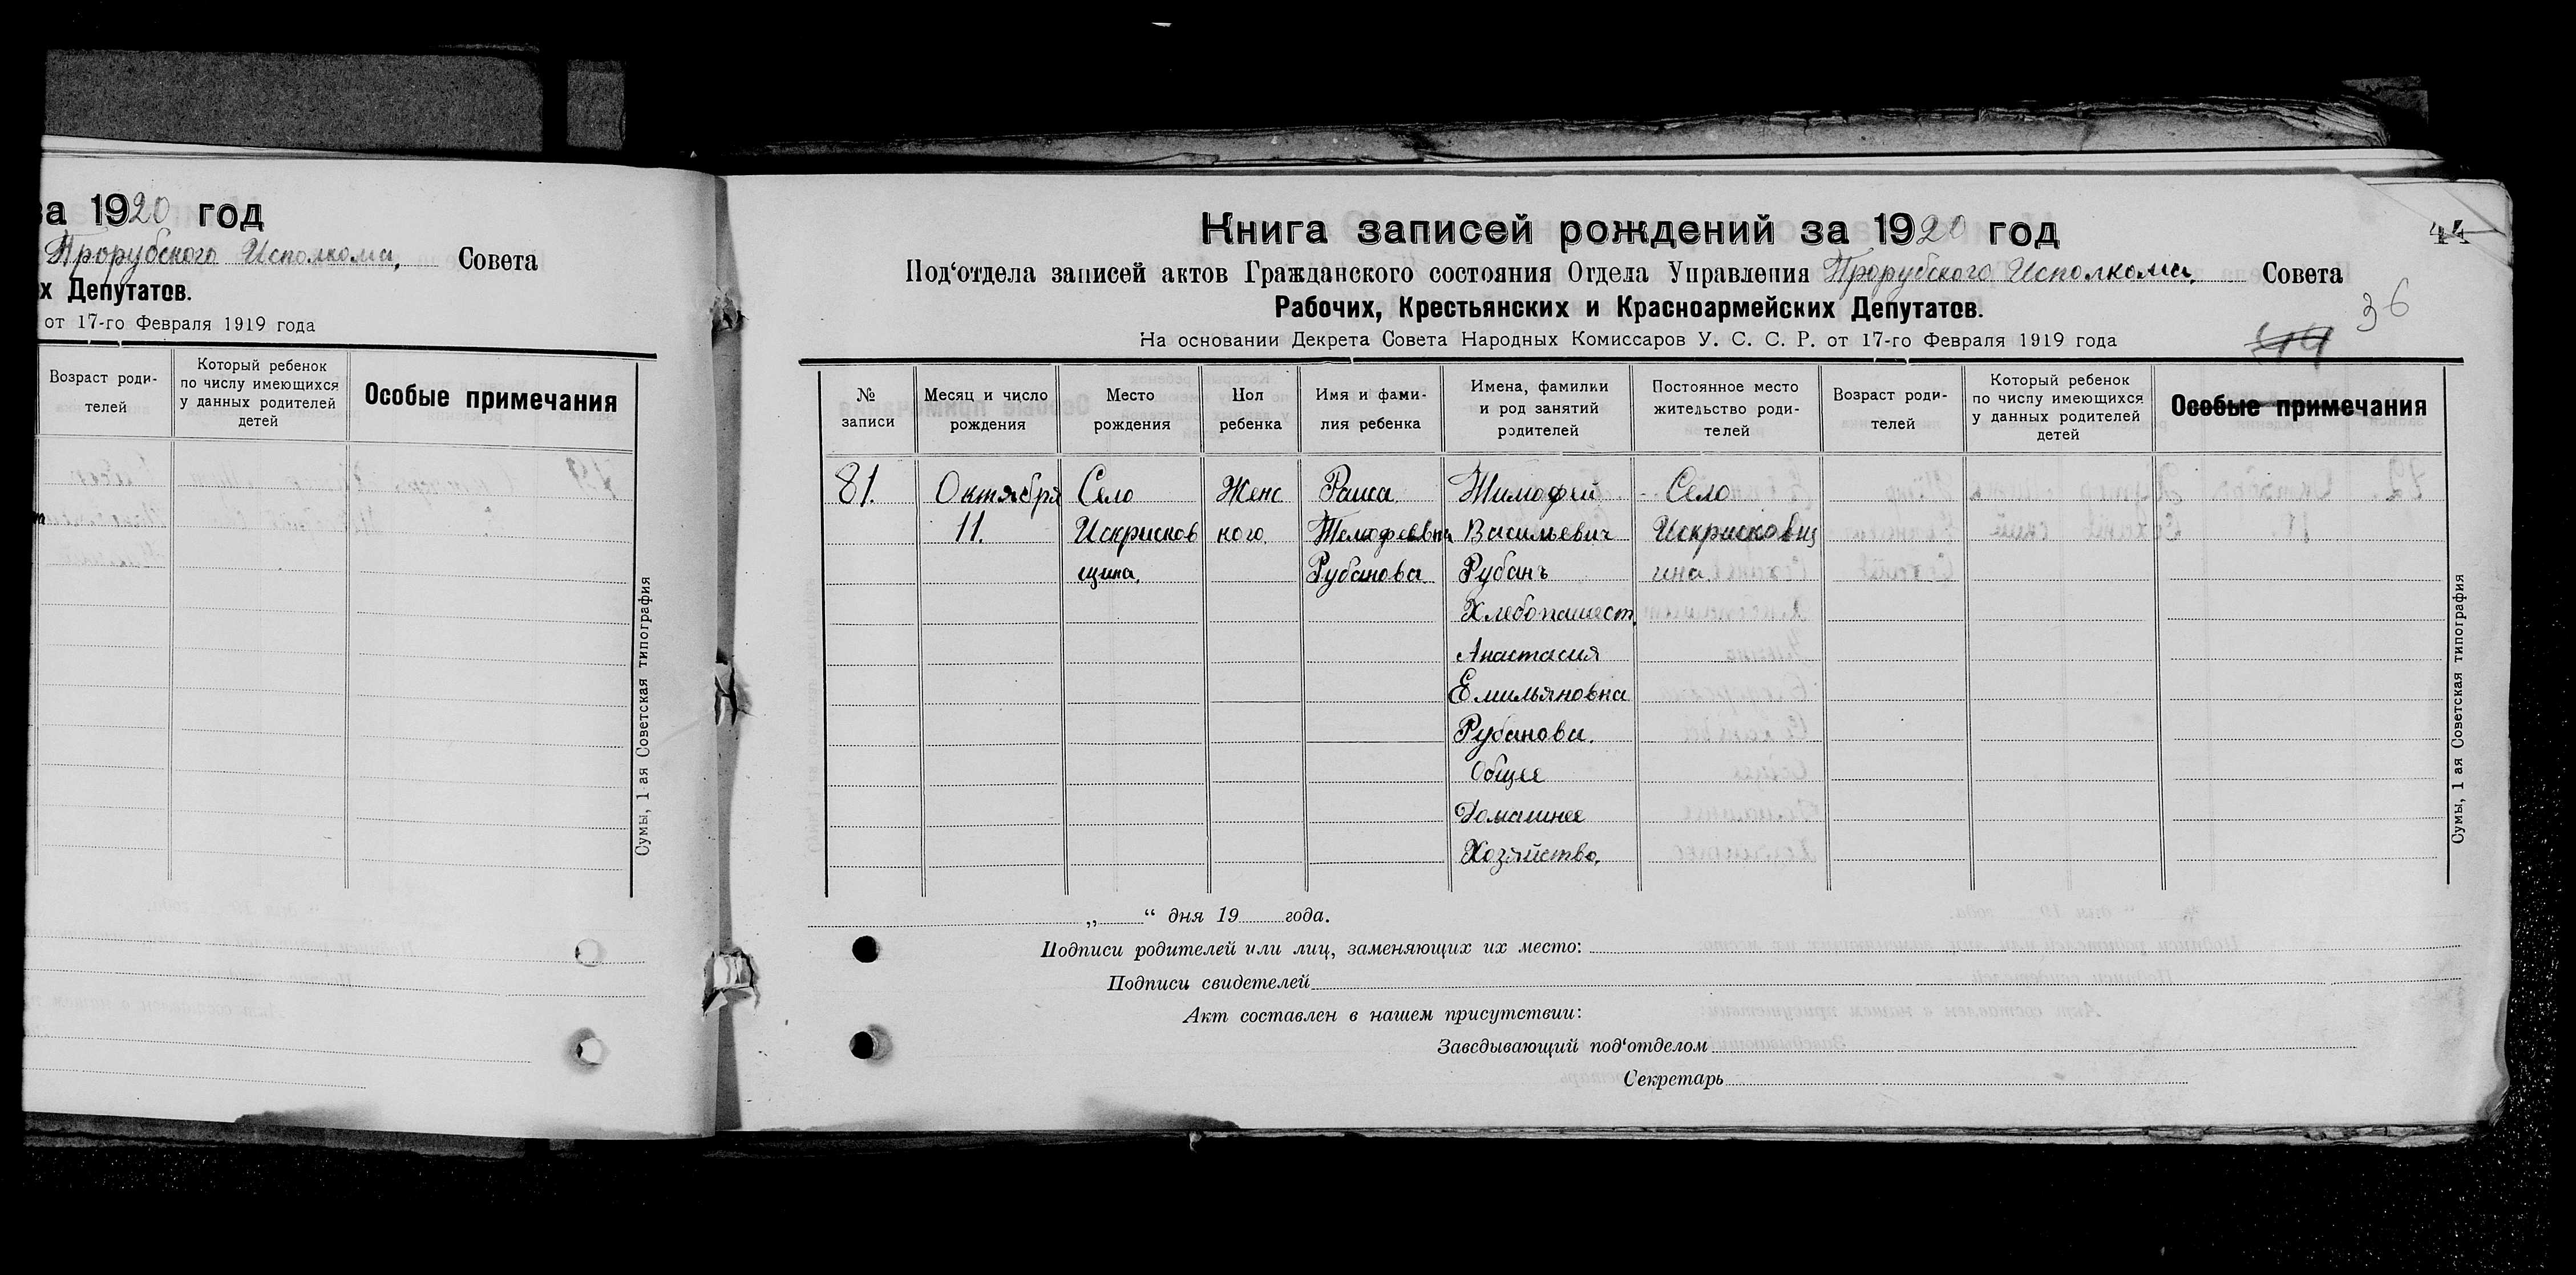 за 1920 год
Прорубского Исполкома, Совета
х Депутатов.
от 17-го Февраля 1919 года
Возраст роди-
телей
Который ребенок
по числу имеющихся
у данных родителей
детей
Особые примечания
Сумы, 1 ая Советская типография
Книга записей рождений за 1920 год
44
Под‘отдела записей актов Гражданского состояния Отдела Управления Прорубского Исполкома, Совета
Рабочих, Крестьянских и Красноармейских Депутатов.
36
На основании Декрета Совета Народных Комиссаров У. С. С. Р. от 17-го Февраля 1919 года
№
записи
Месяц и число
рождения
Место
рождения
Пол
ребенка
Имя и фами-
лия ребенка
Имена, фамилии
и род занятий
родителей
Постоянное место
жительство роди-
телей
Возраст роди-
телей
Который ребенок
по числу имеющихся
у данных родителей
детей
Особые примечания
81.
Октября
11.
Село
Искрисков
щина.
Женс
кого
Раиса
Тимофеевна
Рубанова
Тимофей
Васильевич
Рубанъ
Хлебопашест.
Анастасия
Емильяновна
Рубанова.
Общее
Домашнее
Хозяйство.
Село
Искрисковщ
ина
Сумы, 1 ая Советская типография
„ “ дня 19 года.
Подписи родителей или лиц, заменяющих их место:
Подписи свидетелей
Акт составлен в нашем присутствии:
Заведывающий под‘отделом
Секретарь